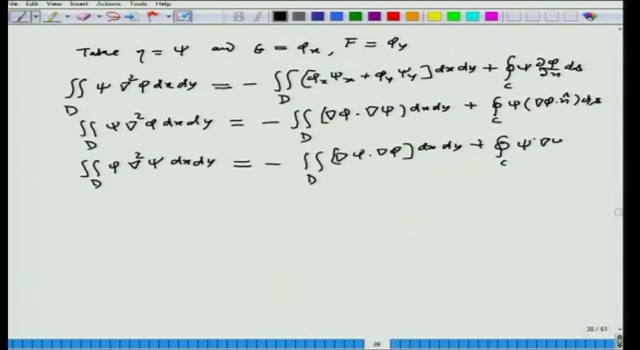 File Edit View Insert Actions Tools Help
Take η = Ψ and G = φₓ, F = φᵧ
∬_D Ψ ∇²φ dxdy = - ∬_D [φₓ Ψₓ + φᵧ Ψᵧ] dxdy + ∮_C Ψ ∂φ/∂n ds
∬_D Ψ ∇²φ dxdy = - ∬_D (∇φ · ∇Ψ) dxdy + ∮_C Ψ (∇φ · n̂) ds
∬_D φ ∇²Ψ dxdy = - ∬_D [∇Ψ · ∇φ] dxdy + ∮_C Ψ · ∇
38 / 61
38